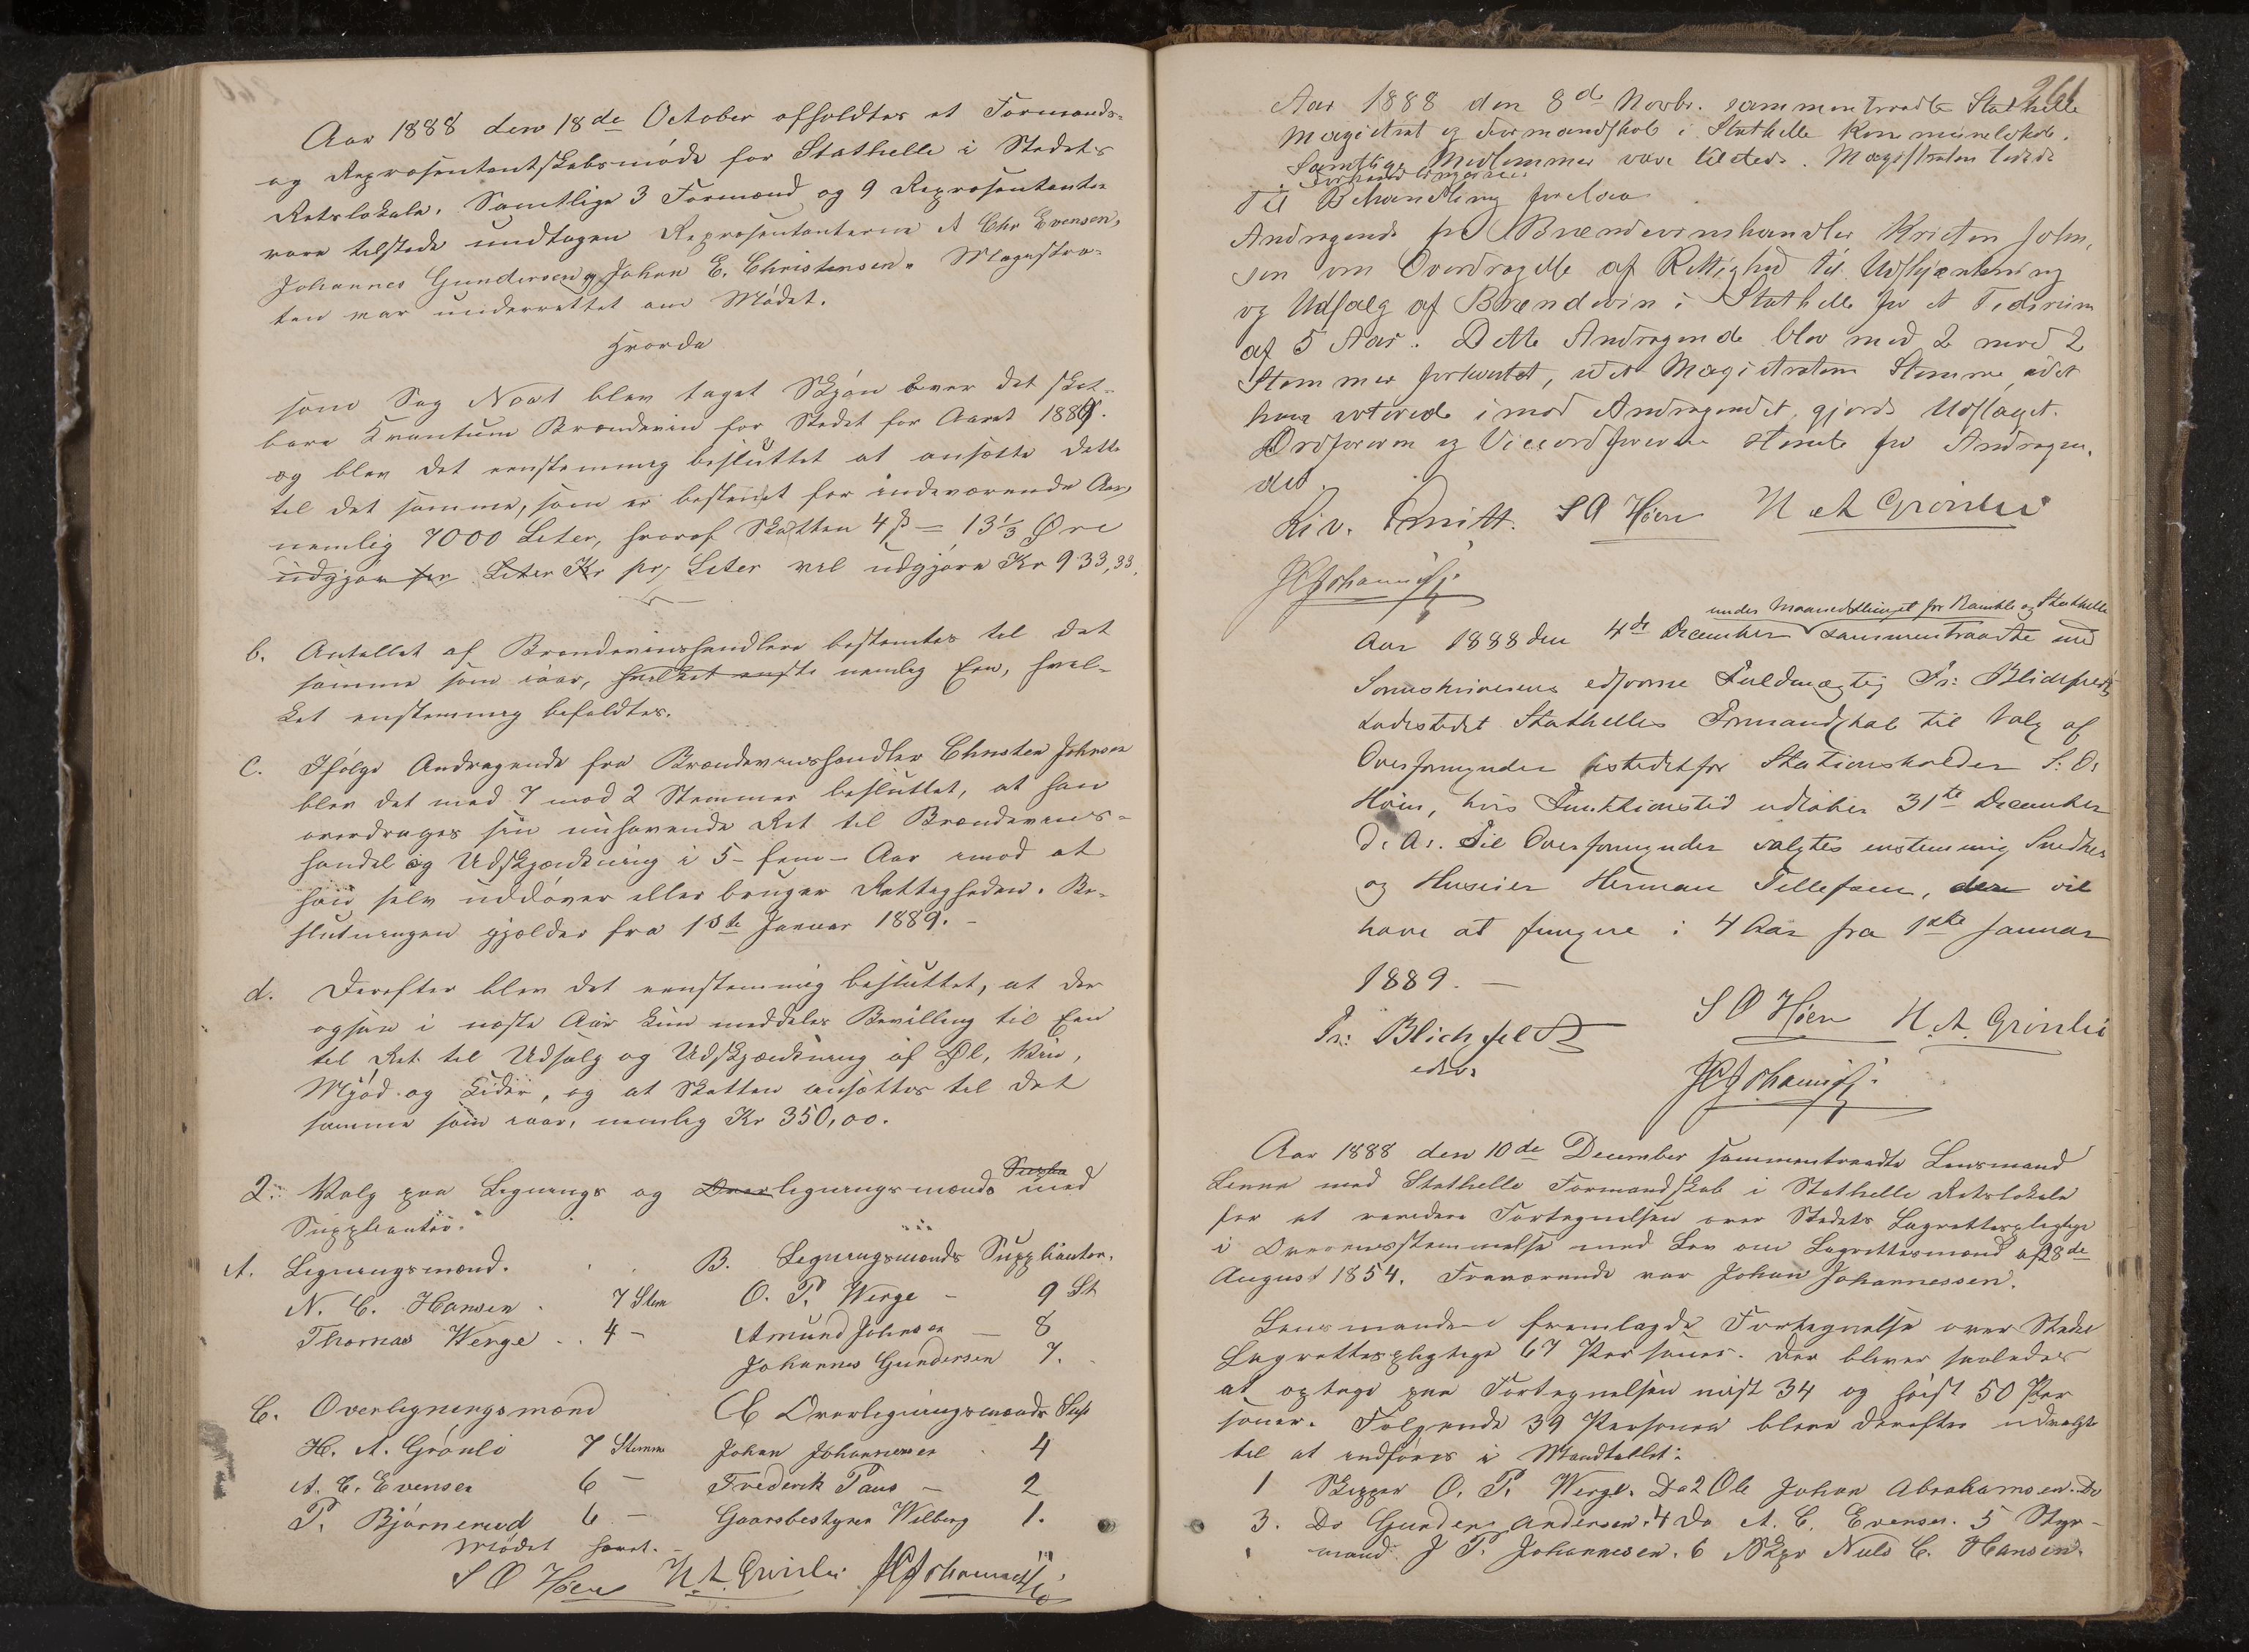 Aar 1888 den 18de October afholdtes et Formands-
og Repræsentantskabsmøde for Stathelle i Stedets
Retslokale. Samtlige 3 Formænd og 9 Repræsentanter
vare tilstede undtagen Repræsentanterne A Chr Evensen,
Johannes Gundersen og Johan E. Christensen. Magistra-
ten var underrettet om Mødet.
Hvorda
som Sag No 1 blev taget Skjøn over det skat-
bare Kvantum Brændevin for Stedet for Aaret 1889.
og blev det eenstemmig besluttet at ansætte dette
til det samme, som er bestemt for indeværende Aar,
nemlig 7000 Liter, hvoraf Skatten 4 ß = 13⅓ Øre
udgjør per Liter Kr pr. Liter vil udgjøre Kr 933,33.
b. Antallet af Brændevinshandlere bestemtes til det
samme som iaar, hvilket nemlig Een, hvil-
ket enstemmig befaldtes.
C. Ifølge Andragende fra Brændevinshandler Christen Johnsen
blev det med 7 mod 2 Stemmer besluttet, at han
overdrages sin nuhavende Ret til Brændevins-
handel og Udskjænkning i 5 - fem - Aar imod at
han selv uddøver eller bruger Rettigheden. Be-
slutningen gjælder fra 1ste Januar 1889. -
d. Derefter blev det eenstemmig besluttet, at der
ogsaa i næste Aar kun meddeles Bevilling til Een
til Ret til Udsalg og Udskjænkning af Øl, Vin,
Mjød og Cider, og at Skatten ansættes til det
samme som iaar, nemlig Kr 350,00.
2. Valg paa Lignings og Overligningsmænd Supple med
Suppleanter.
A. Ligningsmænd. B. Ligningsmænds Suppleanter.
N. C. Hansen 7 Stem O. P. Werge - 9 St
Thomas Werge 4 - Amund Johnsen - 8
Johannes Gundersen 7.
C. Overligningsmænd Overligningsmænds Sup
H. A. Grönli 7 Stemm Johan Johannessen 4
A. C. Evensen 6 - Frederik Paus - 2
P. Björnerud 6 - Gaarsbestyrer Wilberg 1.
Mødet hævet.
S O Høen H. A. Grönli J Johannesen
261
Aar 1888 den 8de Novbr. sammentraadte Stathelle
Magistrat og Formandskab i Stathelle Kommunelokale.
Samtlige Medlemmer vare tilstede. Magistraten ledede
Forhandlingerne
Til Behandling forelaa
Andragende fra Brændevinshandler Kristen John-
sen om Overdragelse af Rettighed til Udskjænkning
og Udsalg af Brændevin i Stathelle for et Tidsrum
af 5 Aar. Dette Andragende blev med 2 mod 2
Stemmer forkastet, idet Magistratens Stemme, idet
han voterede imod Andragendet, gjorde Udslaget.
Ordføreren og Viceordføreren stemte for Andragen-
det.
S O Høen H A Grönlie
J Johannesen
under Maanedsthinget for Bamble og Stathelle
Aar 1888 den 4de December sammentraadte med
Sorenskriverens edsvorne Fuldmægtig Fr: Blichfeldt
Ladestedet Stathelles Formandskab til Valg af
Overformynder istedetfor Stationsholder S. O.
Høen, hvis Funktionstid udløber 31te December
d. A. Til Overformynder valgtes enstemmig Snedker
og Huseier Herman Tellefsen, der vil
have at fungere i 4 Aar fra 1ste Januar
1889. -
Fr: Blichfeldt S O Høen H. A. Grönlie
edsv.
J Johannesen
Aar 1888 den 10de December sammentraadte Lensmand
Linna med Stathelle Formandskab i Stathelle Retslokale
for at revidere Fortegnelsen over Stedets Lagrettespligtige
i Overensstemmelse med Lov om Lagrettesmænd af 28de
August 1854. Fraværende var Johan Johannessen.
Lensmanden fremlagde Fortegnelse over Stedets
Lagrettespligtige 67 Personer. Der bliver saaledes
at optage paa Fortegnelsen mist 34 og høist 50 Per
soner. Følgende 39 Personer bleve derefter udvalgt
til at indføres i Mandtallet:
1 Skipper O. P. Werge. Do 2 Ole Johan Abrahamsen. Do
3. Do Gunder Andersen. 4 Do A. C. Evensen. 5 Styr-
mand J P. Johannesen. 6 Skpr Niels C. Hansen.